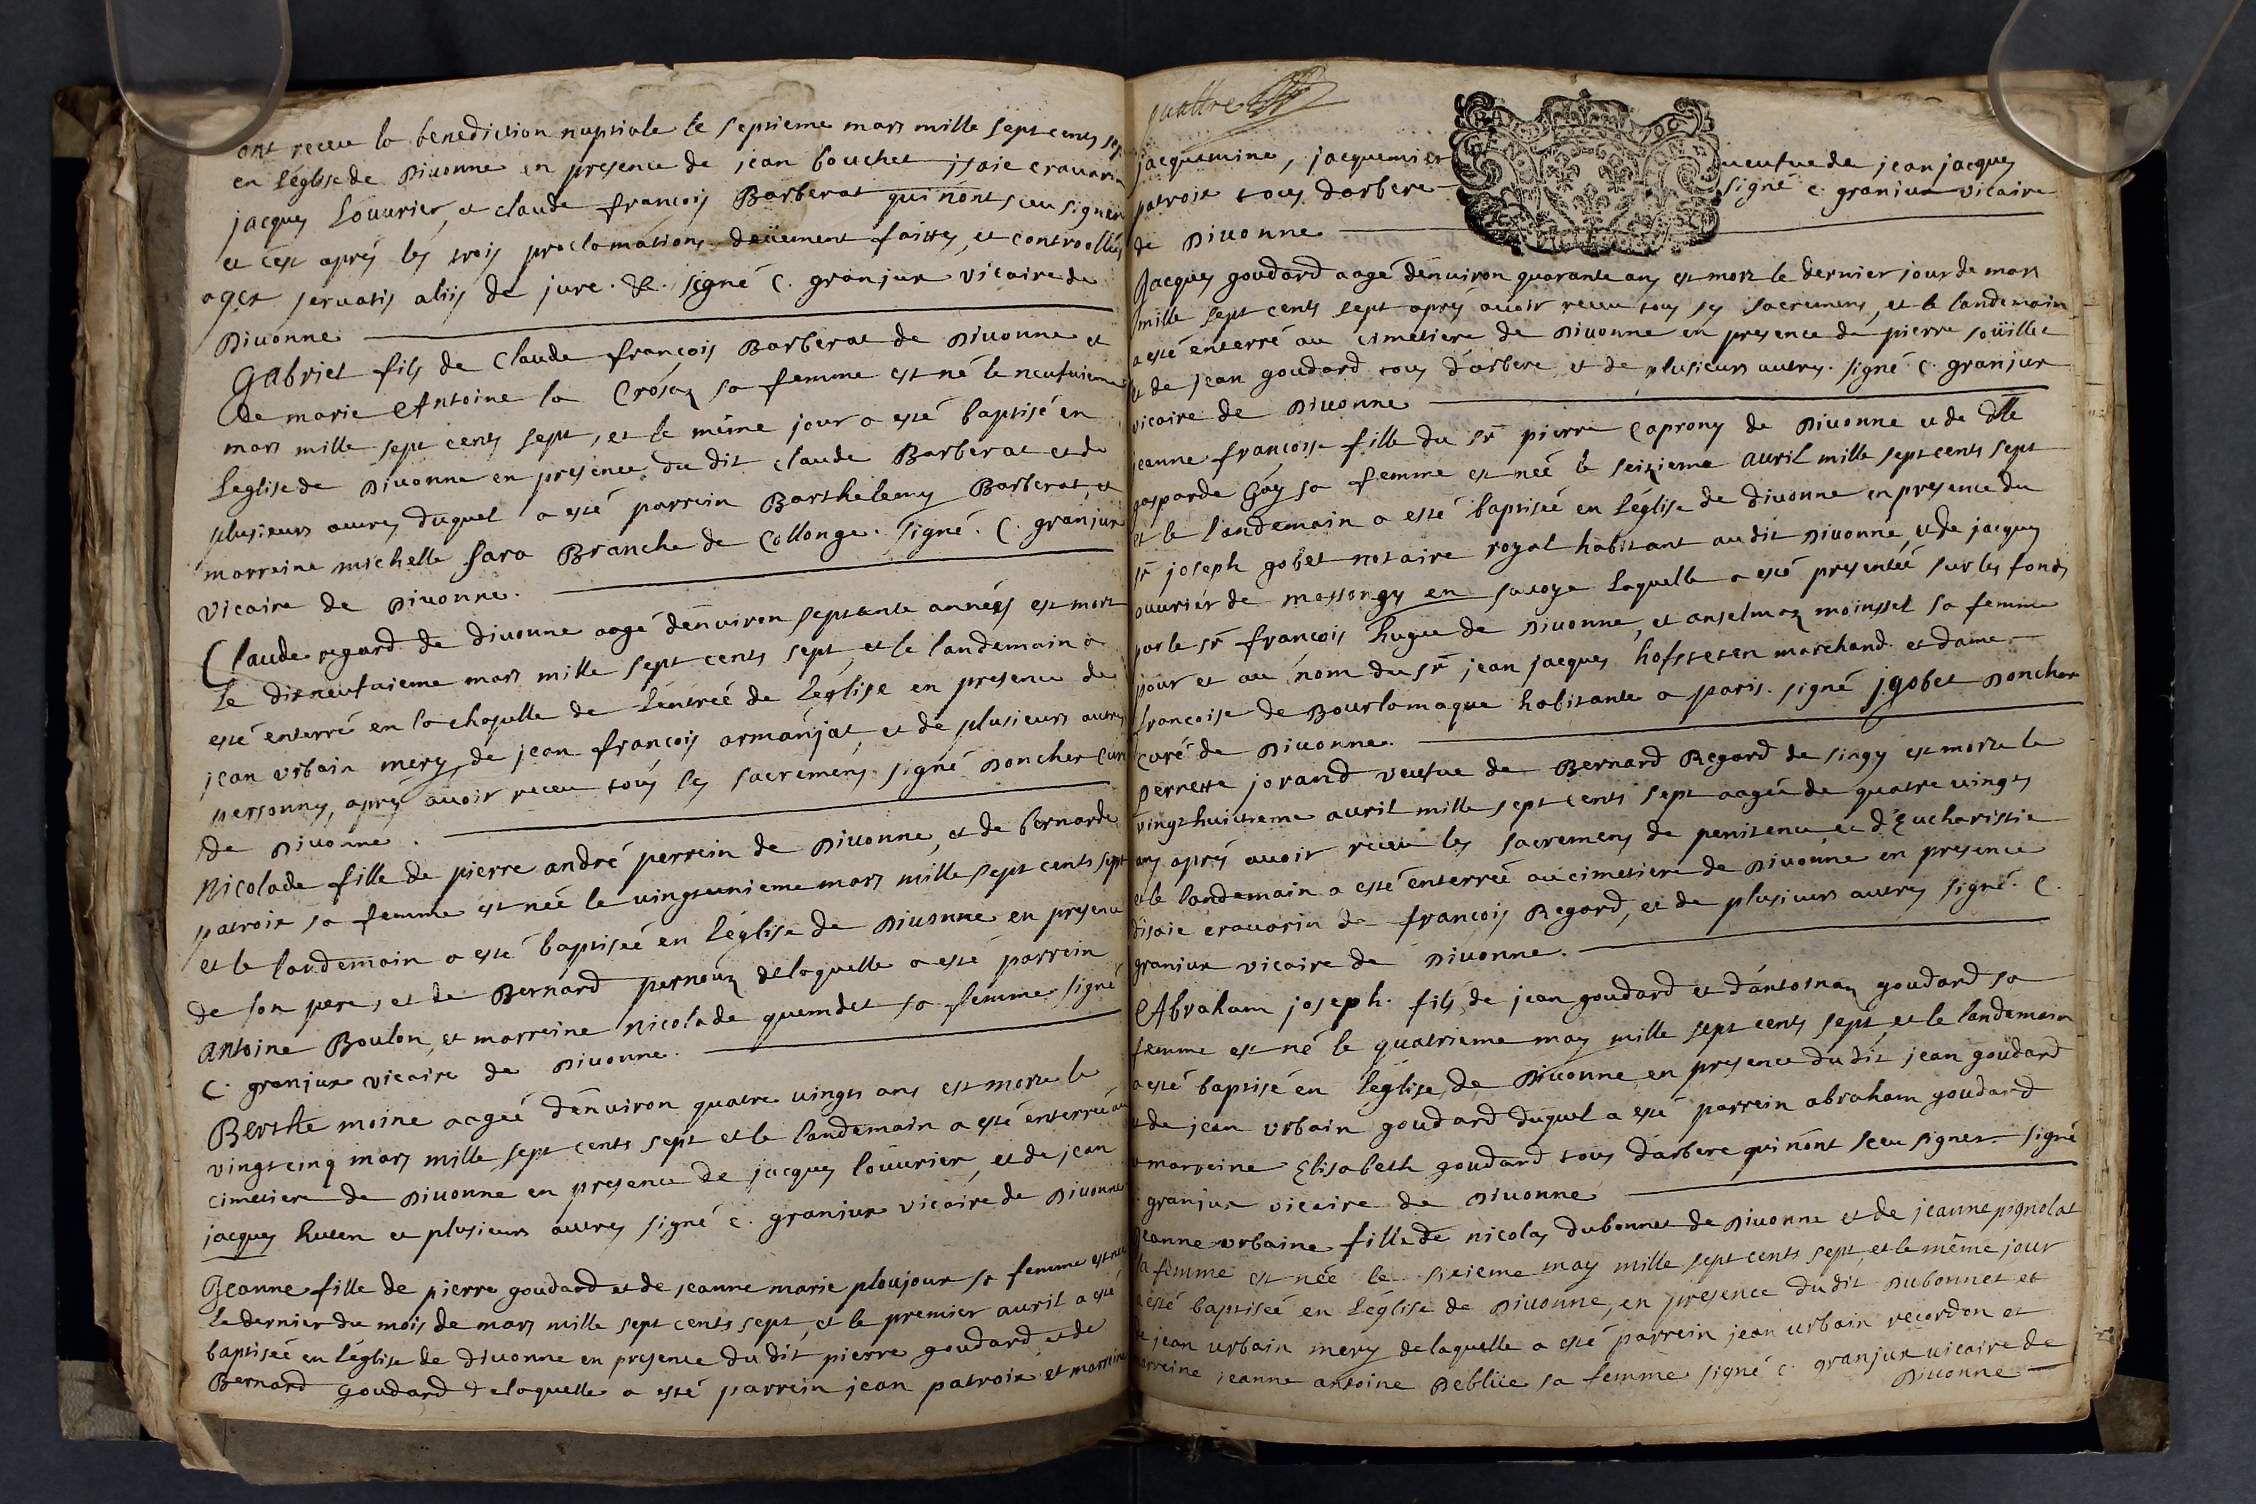 ont receu la benediction nuptiale le septieme mars mille sept cents sep
en léglise de Divonne en presence de jean bouchet jsaie cravarin
jacques Louurier, et claude françois Barberat qui nont sceu signer
et cest aprés les trois proclamations deüement faittes, et controollées
servatis aliis de jure. &. signé C. granjux vicaire de
Divonne
Gabriel fils de Claude françois Barberat de Divonne et
de marie Antoine la Crósaz sa femme est né le neufuieme
mars mille sept cents sept, et le méme jour a esté baptisé en
Leglise de Divonne en presence du dit claude Barberat et de
plusieurs autres duquel a esté parrein Barthelemy Barberat, et
marreine michelle Sara Branche de Collonge. signé. C. granjux
vicaire de Divonne.
Claude regard de divonne aagé dénviron septante années est mort
le dixneufuieme mars mille sept cents sept, et le landemain a
esté enterré en la chapelle de Léntrée de Leglise en presence de
jean vrbain mery, de jean françois armanjat, et de plusieurs autres
personnes, aprés avoir receu tous ses sacremens signé Doncher Curé
de Divonne.
Nicolade fille de pierre andré perrein de Divonne, et de bernarde
patroix sa femme est née le vingtunieme mars mille sept cents sept
et le landemain a esté baptiseé en Léglise de Divonne en presence
de son pere, et de Bernard pernouz delaquelle a esté parrein
Antoine Boulon, et marreine Nicolade quemdet sa femme signé
C. granjux vicaire de Divonne.
Berthe moine aageé dénviron quatre vingts ans est morte le
vingtcinq mars mille sept cents sept et le landemain a esté enterreé au
cimetiere de Divonne en presence de jacques louurier, et de jean
jacques huten et plusieurs autres signé c. granjux vicaire de Divonne
Jeanne fille de pierre goudard et de jeanne marie ploujoux sa femme est née
Le dernier du mois de mars mille sept cents sept, et le premier avril a esté
baptiseé en Léglise de Divonne en presence du dit pierre goudard, et de
Bernard goudard delaquelle a esté parrein jean patroix et marreine
quattre
jacquemine, jacquemier veufue de jean jacques
patroix tous darbere signé c. granjux vicaire
de Divonne
Jacques goudard aagé dénviron quarante ans est mort le dernier jour de mars
mille sept cents sept aprés avoir receu tous ses sacremens, et le landemain
a esté enterré au cimetiere de Divonne en presence de pierre soüillet
et de jean goudard tous dárbere, et de plusieurs autres. signé c. granjux
vicaire de Divonne
jeanne françoise fille du sr pierre Caprony de Divonne et de dlle
gasparde Gay sa femme est neé le seizieme avril mille sept cents sept
et le landemain a esté baptisée en Léglise de divonne en presence du
sr joseph gobet notaire royal habitant au dit Divonne, et de jacques
ouuriér de massongy en savoye laquelle a esté presenteé sur les fonds
par le sr françois hugue de Divonne, et anselmaz moinssel sa femme
pour et au nom du sr jean jacques hofsteten marchand. et dame
françoise de Bourlamaque habitante a paris. signé jgobet Doncher
Curé de Divonne.
perrette jorand veufue de Bernard Regard de singy est morte le
vingthuitieme avril mille sept cents sept aageé de quatre vingts
ans aprés avoir receu les sacremens de penitence et d'Eucharistie
et le landemain a esté enterreé au cimetiere de Divonne en presence
disaie cravarin de françois Regard, et de plusieurs autres signé. C.
granjux vicaire de Divonne.
Abraham joseph. fils de jean goudard et dántoinaz goudard sa
femme est né le quatrieme may mille sept cents sept, et le landemain
a esté baptisé en Léglise de Divonne en presence du dit jean goudard
et de jean vrbain goudard duquel a esté parrein abraham goudard
et marreine Elisabeth goudard tous dárbere qui nónt sceu signer signé
c. granjux vicaire de Divonne
Jeanne vrbaine fille de nicolas dubonnet de Divonne et de jeanne pignolat
sa femme est née le sixieme may mille sept cents sept, et le méme jour
a esté baptiseé en Léglise de Divonne, en presence du dit Dubonnet et
de jean vrbain mery delaquelle a esté parrein jean vrbain recordon et
marreine jeanne antoine Deblüe sa femme signé c. granjux vicaire de
Divonne